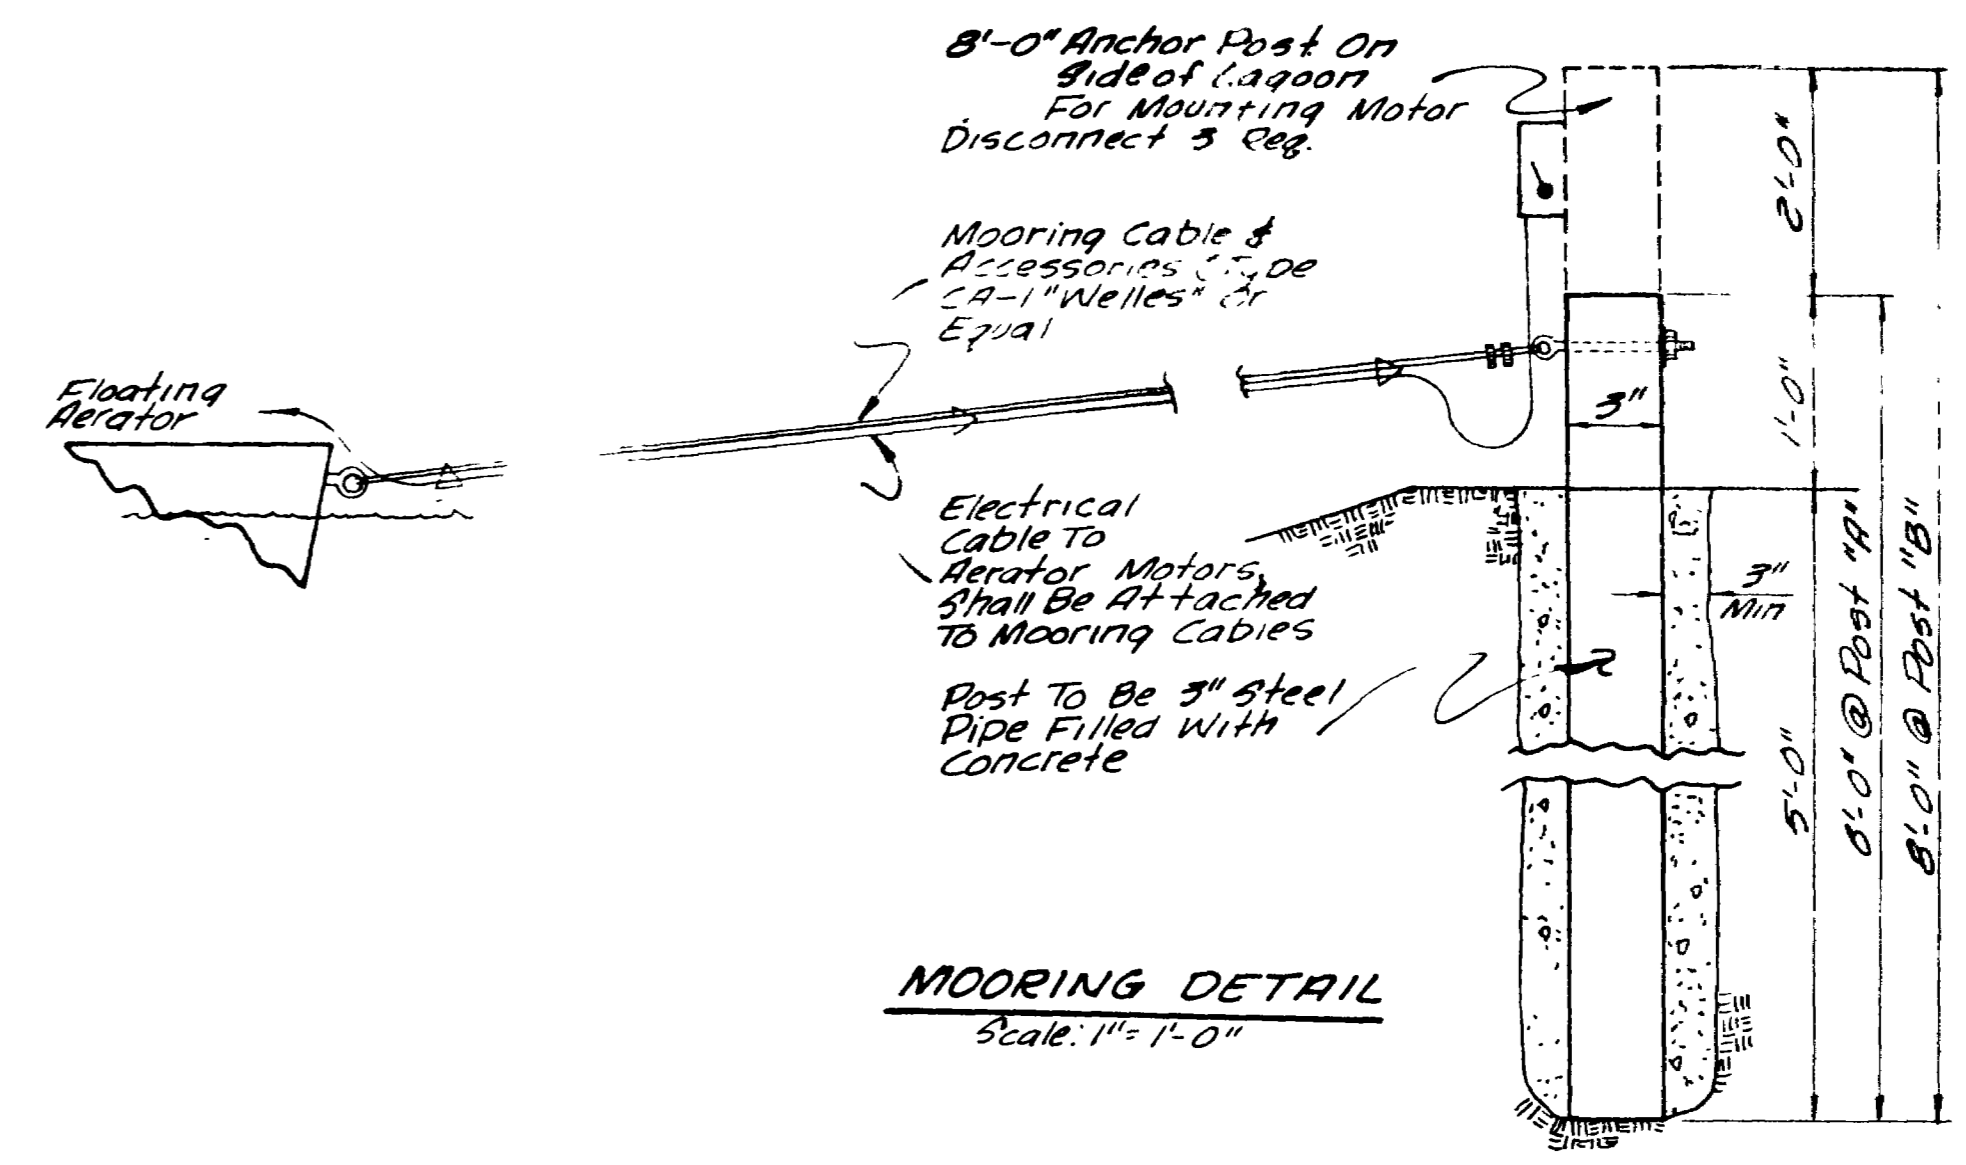 8'-0" Anchor Post On
Side of Lagoon
For Mounting Motor
Disconnect 3 Req.
Mooring Cable &
Accessories (Type
CA-1 "Welles" Or
Equal
Floating
Aerator
Electrical
Cable To
Aerator Motors,
Shall Be Attached
To Mooring Cables
Post To Be 3" Steel
Pipe Filled With
Concrete
3"
3"
Min
2'-0"
1'-0"
5'-0"
@ Post "A"
8'-0" @ Post "B"
MOORING DETAIL
Scale: 1" = 1'-0"